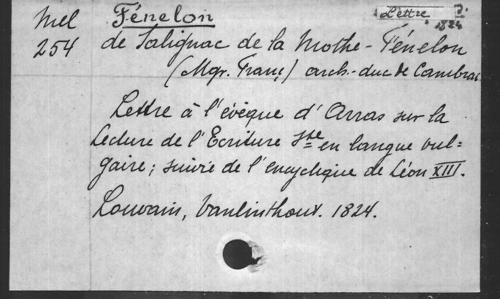 Mel Fénelon Lettre P.
254 1824
de Salignac de la Mothe-Fénelon
(Mgr. Franç) arch.-duc de Cambrai
Lettre à l'évêque d'Arras sur la
Lecture de l'Ecriture Ste en langue vul=
gaire; suivie de l'encyclique de Léon XIII.
Louvain, Vanlinthout. 1824.